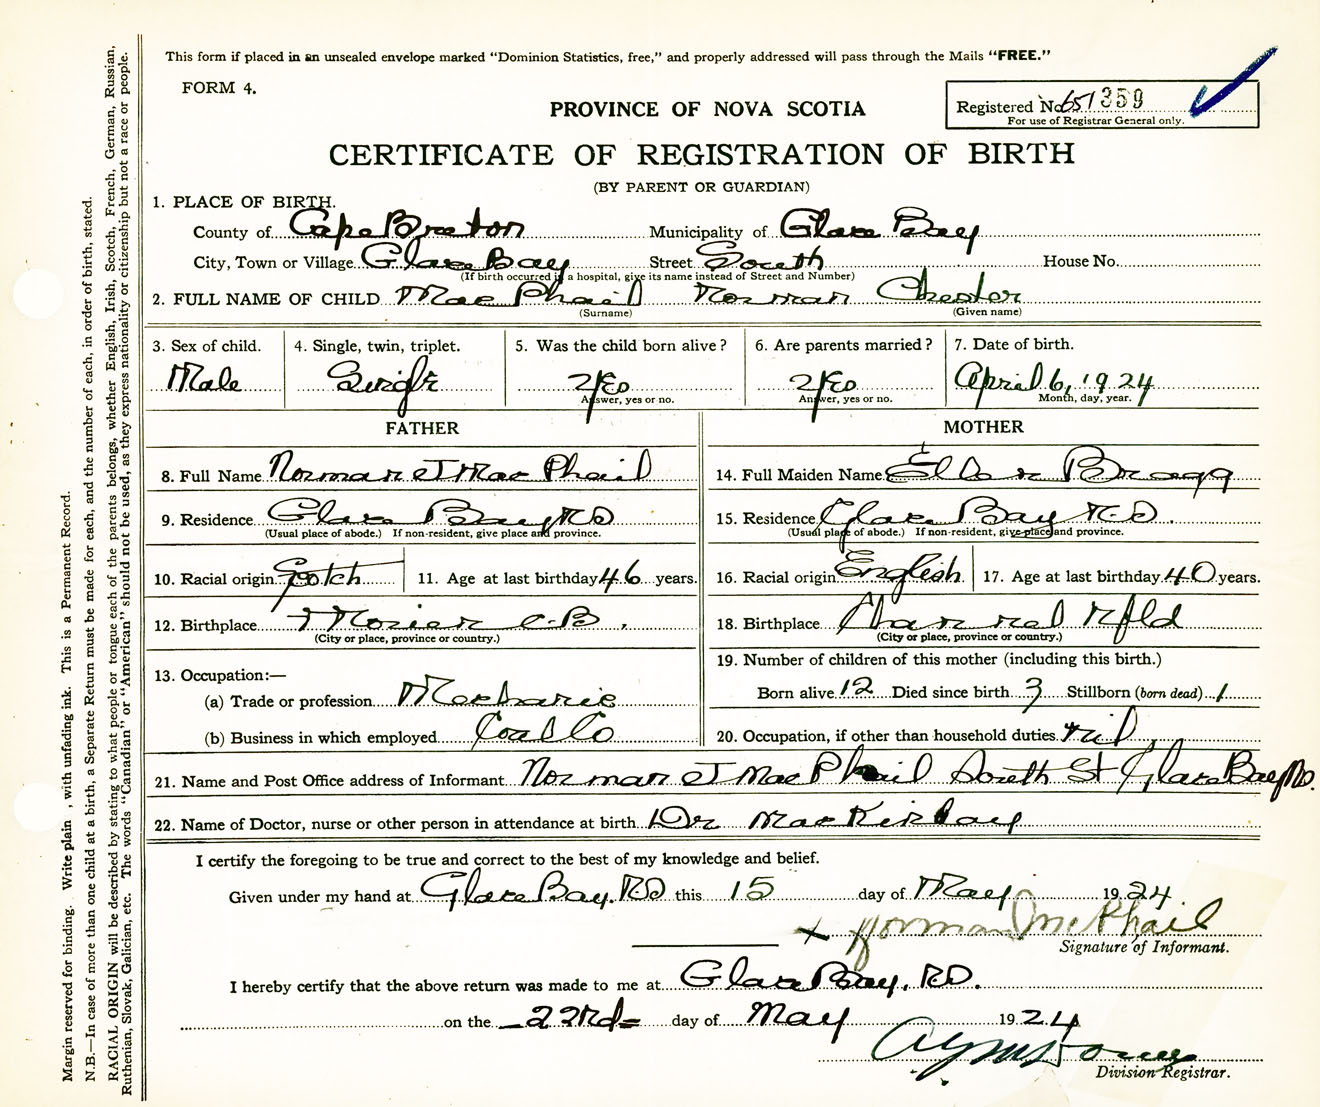 This form if placed in an unsealed envelope marked "Dominion Statistics, free," and properly addressed will pass through the Mails "FREE."
FORM 4.
PROVINCE OF NOVA SCOTIA
Registered No. 651359
For use of Registrar General only.
CERTIFICATE OF REGISTRATION OF BIRTH
(BY PARENT OR GUARDIAN)
1. PLACE OF BIRTH.
County of Cape Breton Municipality of Glace Bay
City, Town or Village Glace Bay Street South House No.
(If birth occurred in a hospital, give its name instead of Street and Number)
2. FULL NAME OF CHILD MacPhail Norman Chester
(Surname) (Given name)
3. Sex of child. 4. Single, twin, triplet. 5. Was the child born alive? 6. Are parents married? 7. Date of birth.
Male Single Yes Yes April 6, 1924
Answer, yes or no. Answer, yes or no. Month, day, year.
FATHER MOTHER
8. Full Name Norman J MacPhail 14. Full Maiden Name Bragg
9. Residence Glace Bay RD 15. Residence Glace Bay R.D.
(Usual place of abode.) If non-resident, give place and province. (Usual place of abode.) If non-resident, give place and province.
10. Racial origin Scotch 11. Age at last birthday 46 years. 16. Racial origin English 17. Age at last birthday 40 years.
12. Birthplace C.B. 18. Birthplace Channel Nfld
(City or place, province or country.) (City or place, province or country.)
13. Occupation:— 19. Number of children of this mother (including this birth.)
(a) Trade or profession Mechanic Born alive 12 Died since birth 3 Stillborn (born dead) 1
(b) Business in which employed Coal Co 20. Occupation, if other than household duties nil
21. Name and Post Office address of Informant Norman J MacPhail South St Glace Bay RD.
22. Name of Doctor, nurse or other person in attendance at birth Dr MacKinlay
I certify the foregoing to be true and correct to the best of my knowledge and belief.
Given under my hand at Glace Bay. RD this 15 day of May 1924
x Norman J McPhail
Signature of Informant.
I hereby certify that the above return was made to me at Glace Bay, RD.
on the 22nd day of May 1924
Division Registrar.
Margin reserved for binding. Write plain, with unfading ink. This is a Permanent Record.
N.B.—In case of more than one child at a birth, a Separate Return must be made for each, and the number of each, in order of birth, stated.
RACIAL ORIGIN will be described by stating to what people or tongue each of the parents belongs, whether English, Irish, Scotch, French, German, Russian,
Ruthenian, Slovak, Galician, etc. The words "Canadian" or "American" should not be used, as they express nationality or citizenship but not a race or people.